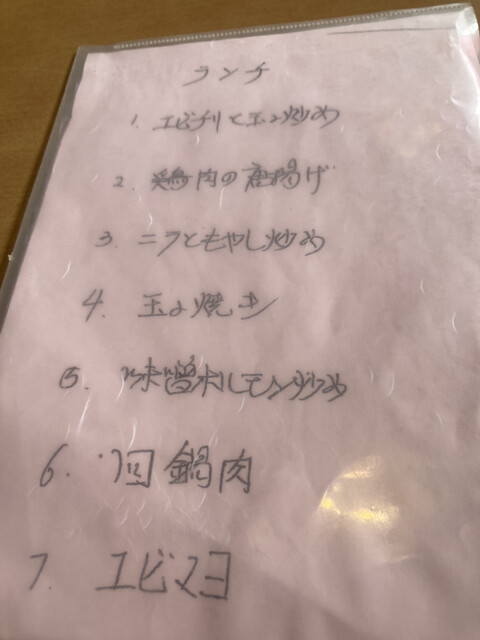 ランチ
1. エビチリと玉子炒め
2. 鶏肉の唐揚げ
3. ニラともやし炒め
4. 玉子焼き
5. 味噌ホルモン炒め
6. 回鍋肉
7. エビマヨ